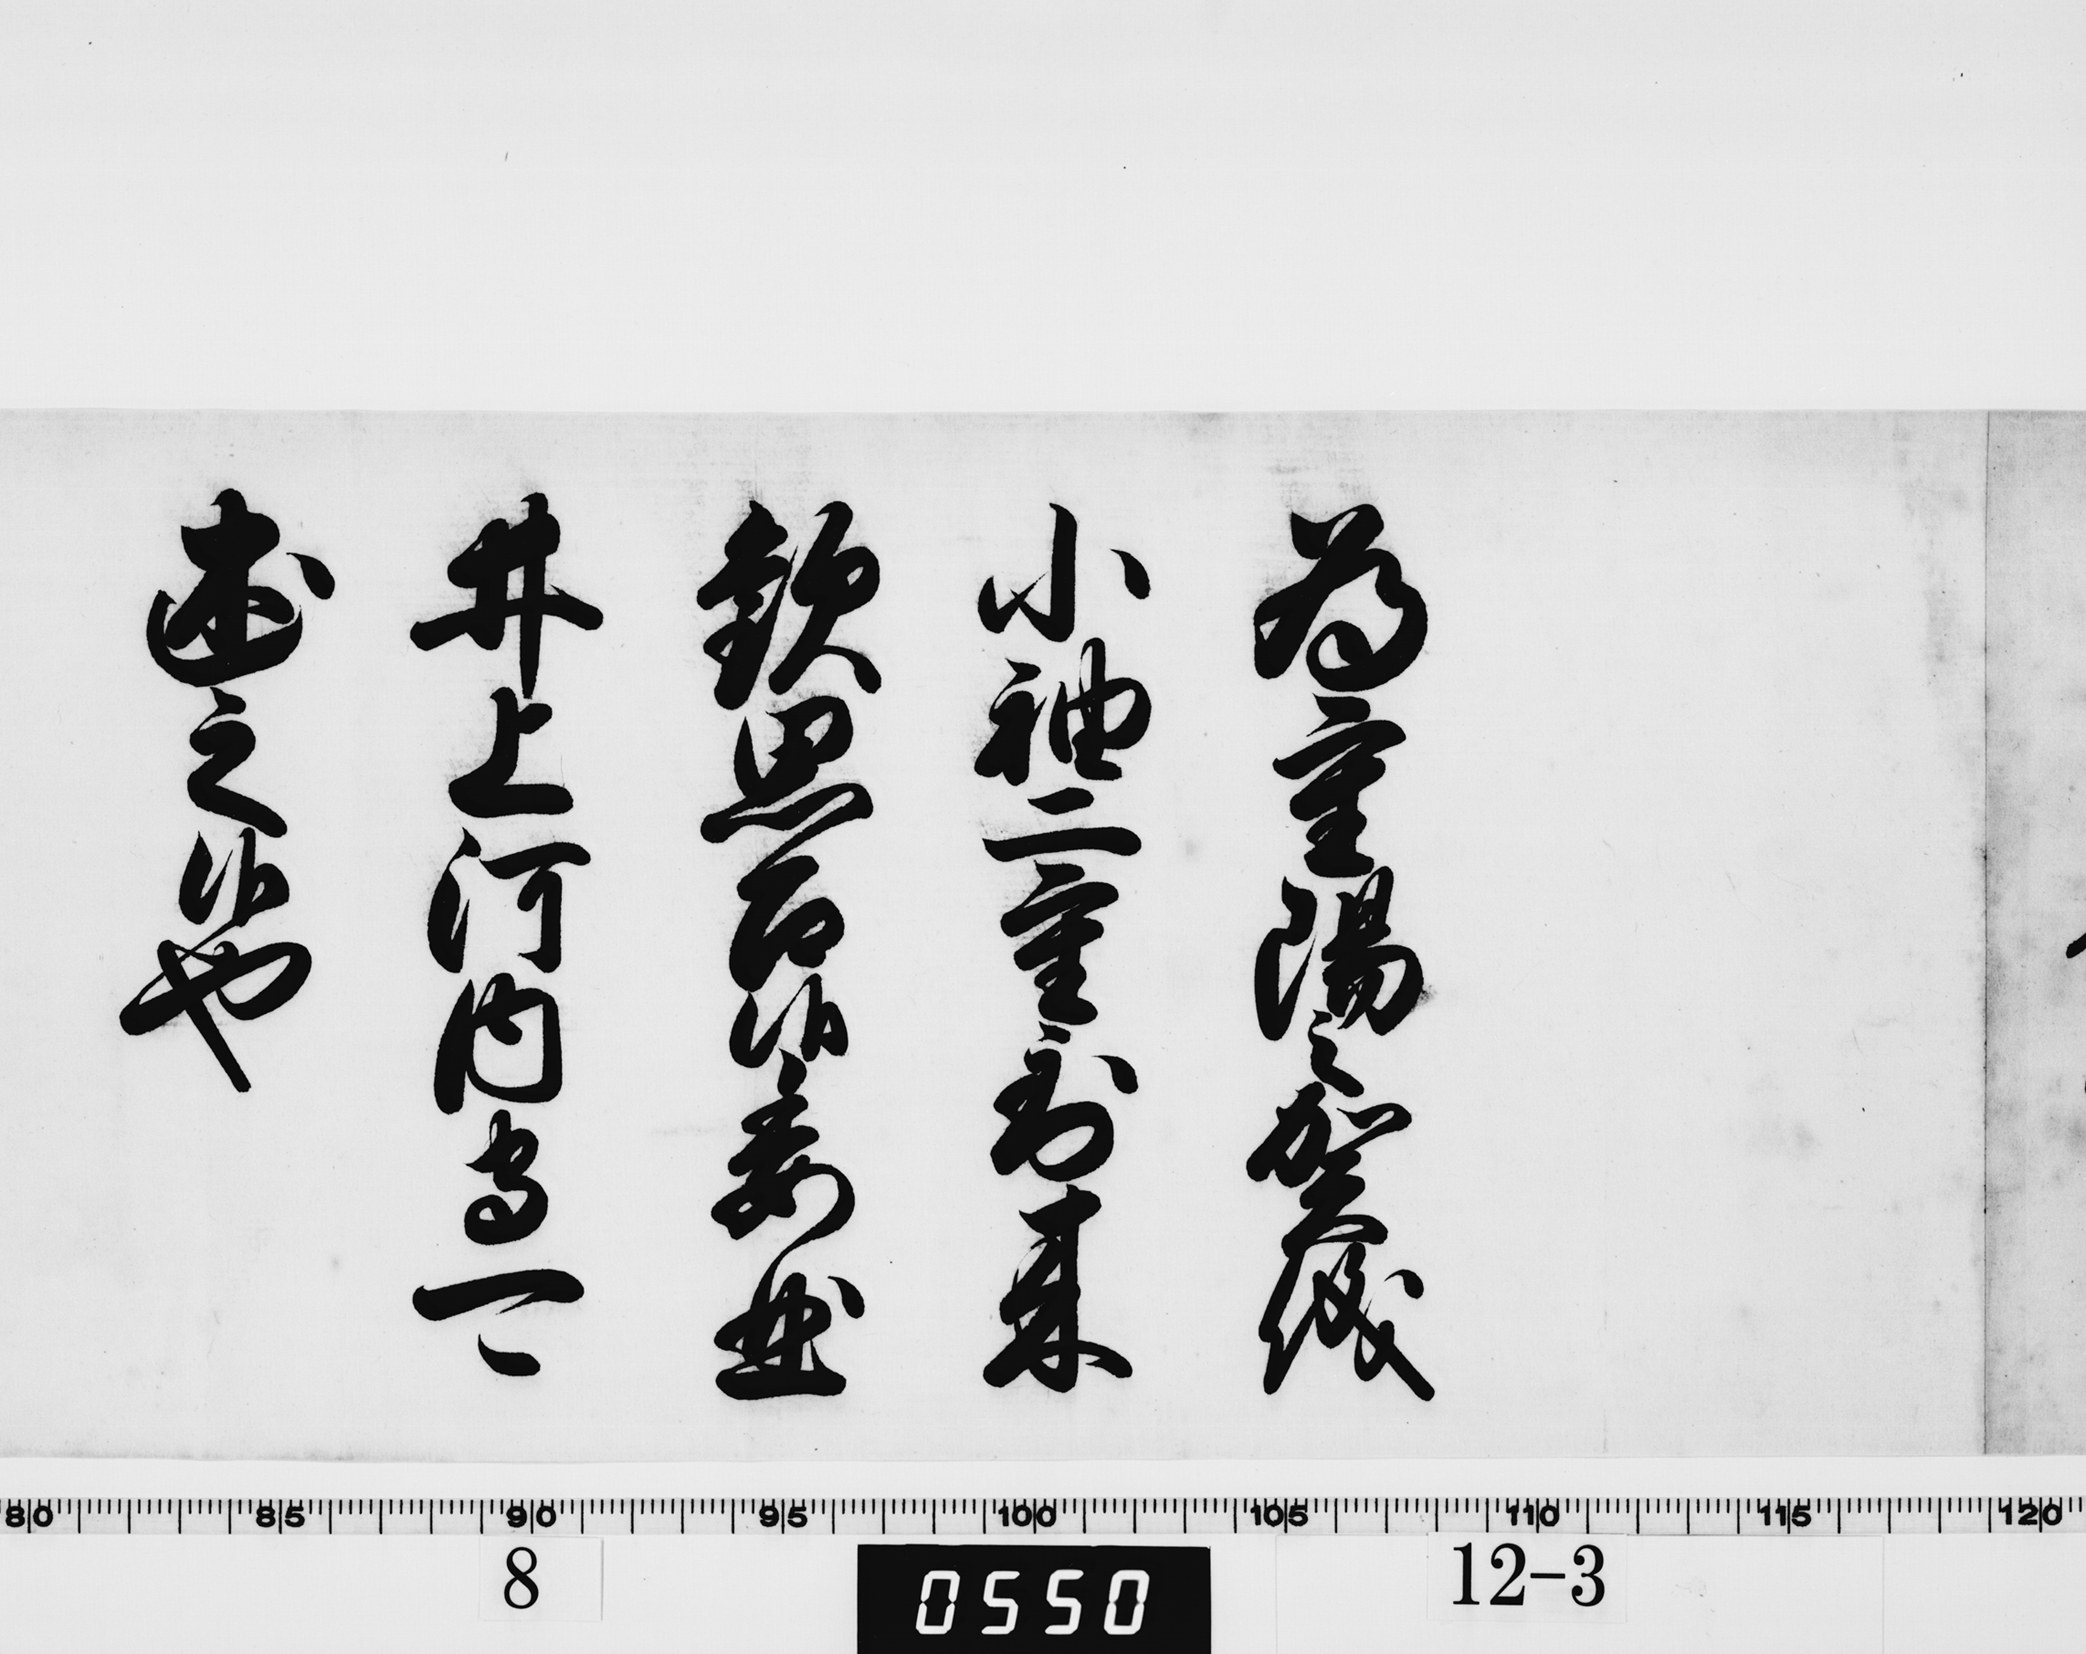 為重陽之賀儀
小袖二重到来
歓思召候委曲
井上河内守可
述之候也
80 85 90 95 100 105 110 115 120
8 0550 12-3